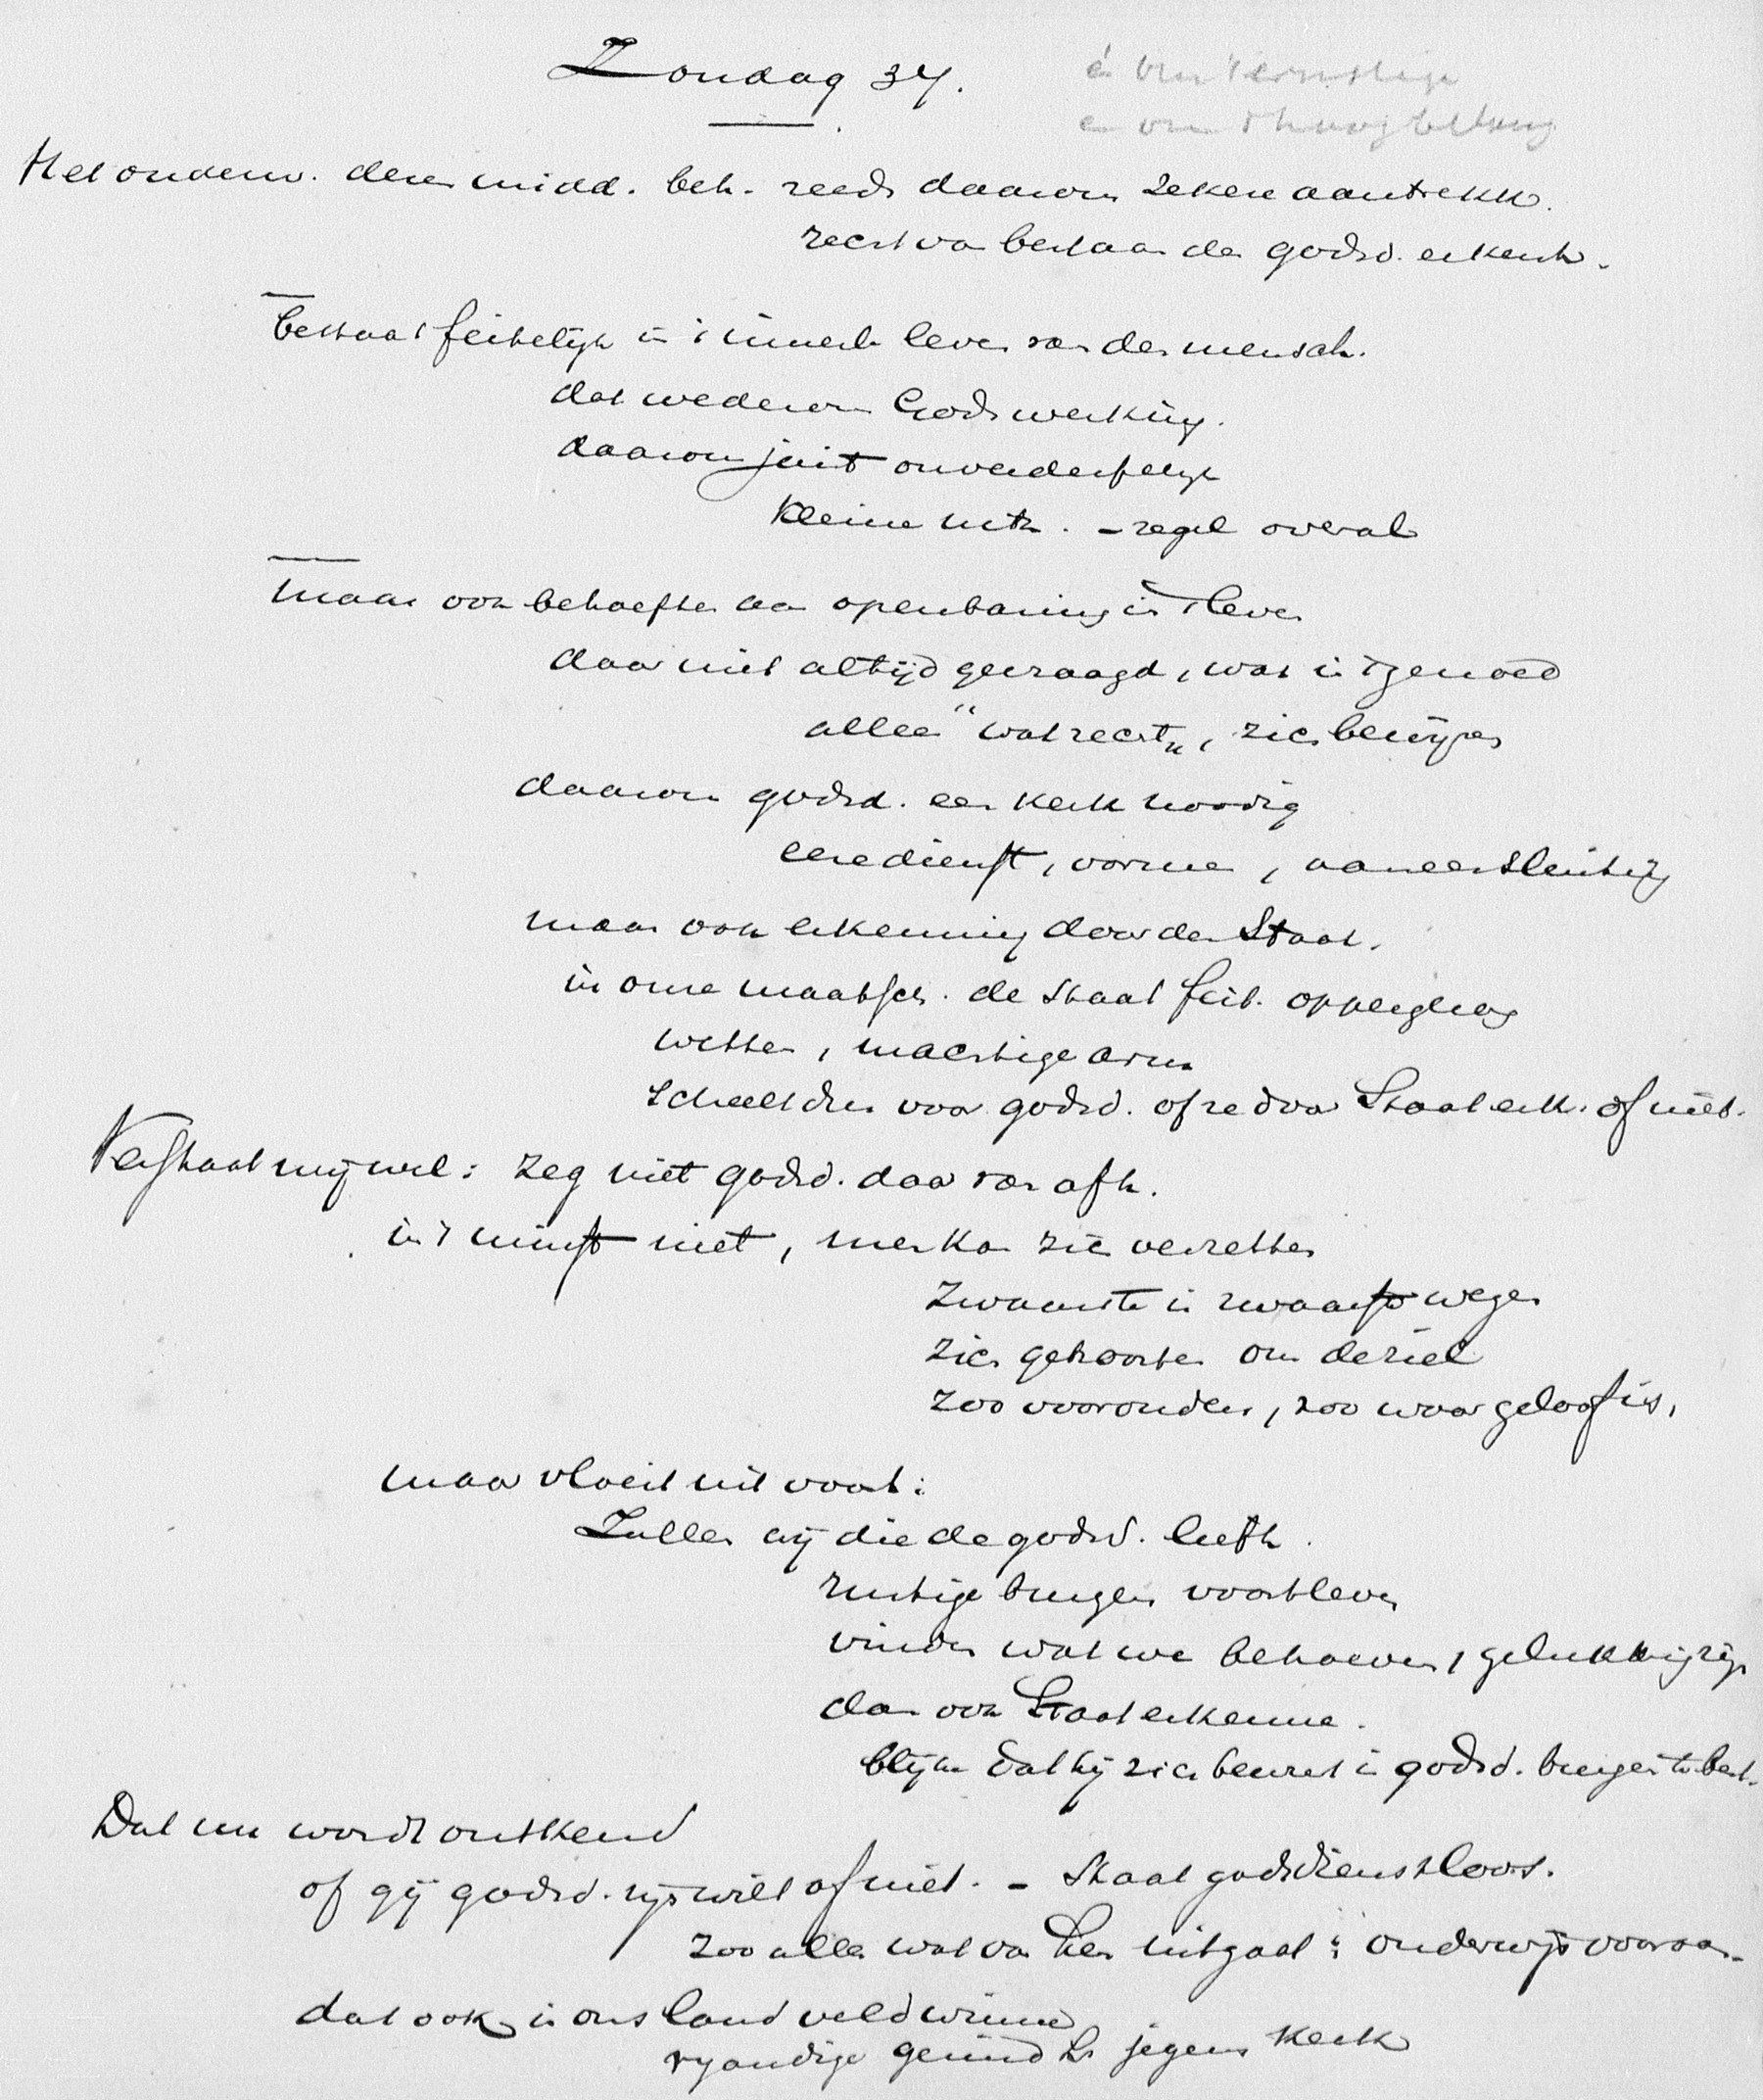 Zondag 34.
Het onderw. dezer midd. beh. reeds daarom zekere aantrekk.
recht van bestaan der godsd. erkent.
bestaat feitelijk in 't innerl. leven van den mensch.
dat wederom Gods werking.
daarom juist onverderfelijk
kleine uitz. - regel overal
maar ook behoefte aan openbaring in 't leven
daar niet altijd gevraagd, wat in 't gemoed
alleen "wat recht", zich bewijzen
daarom godsd. een kerk noodig
eeredienst, vormen, aaneensluiting
maar ook erkenning door den Staat.
in onze maatsch. de Staat feit. oppergezag
wetten, machtige arm
scheelt dus voor godsd. of ze door Staat erk. of niet.
Verstaat mij wel: zeg niet godsd. daar van afh.
in 't minst niet, men kan zich verzetten
zwaarste in zwaarst wegen
zich getroosten om de ziel
zoo vooronders, zoo waar geloof is,
maar vloeit uit voort:
Zullen wij die de godsd. liefh.
rustige burgers voortleven
vinden wat we behoeven, gelukkig zijn
dan ook Staat erkenne.
blijke dat hij zich bewust is godsd. burgers te best.
Dat nu wordt ontkend
of gij godsd. zijn wilt of niet. - Staat godsdienstloos.
zoo alles wat van hem uitgaat: onderwijs vooraan.
dat ook in ons land veld winne
vijandige gezindh. jegens kerk